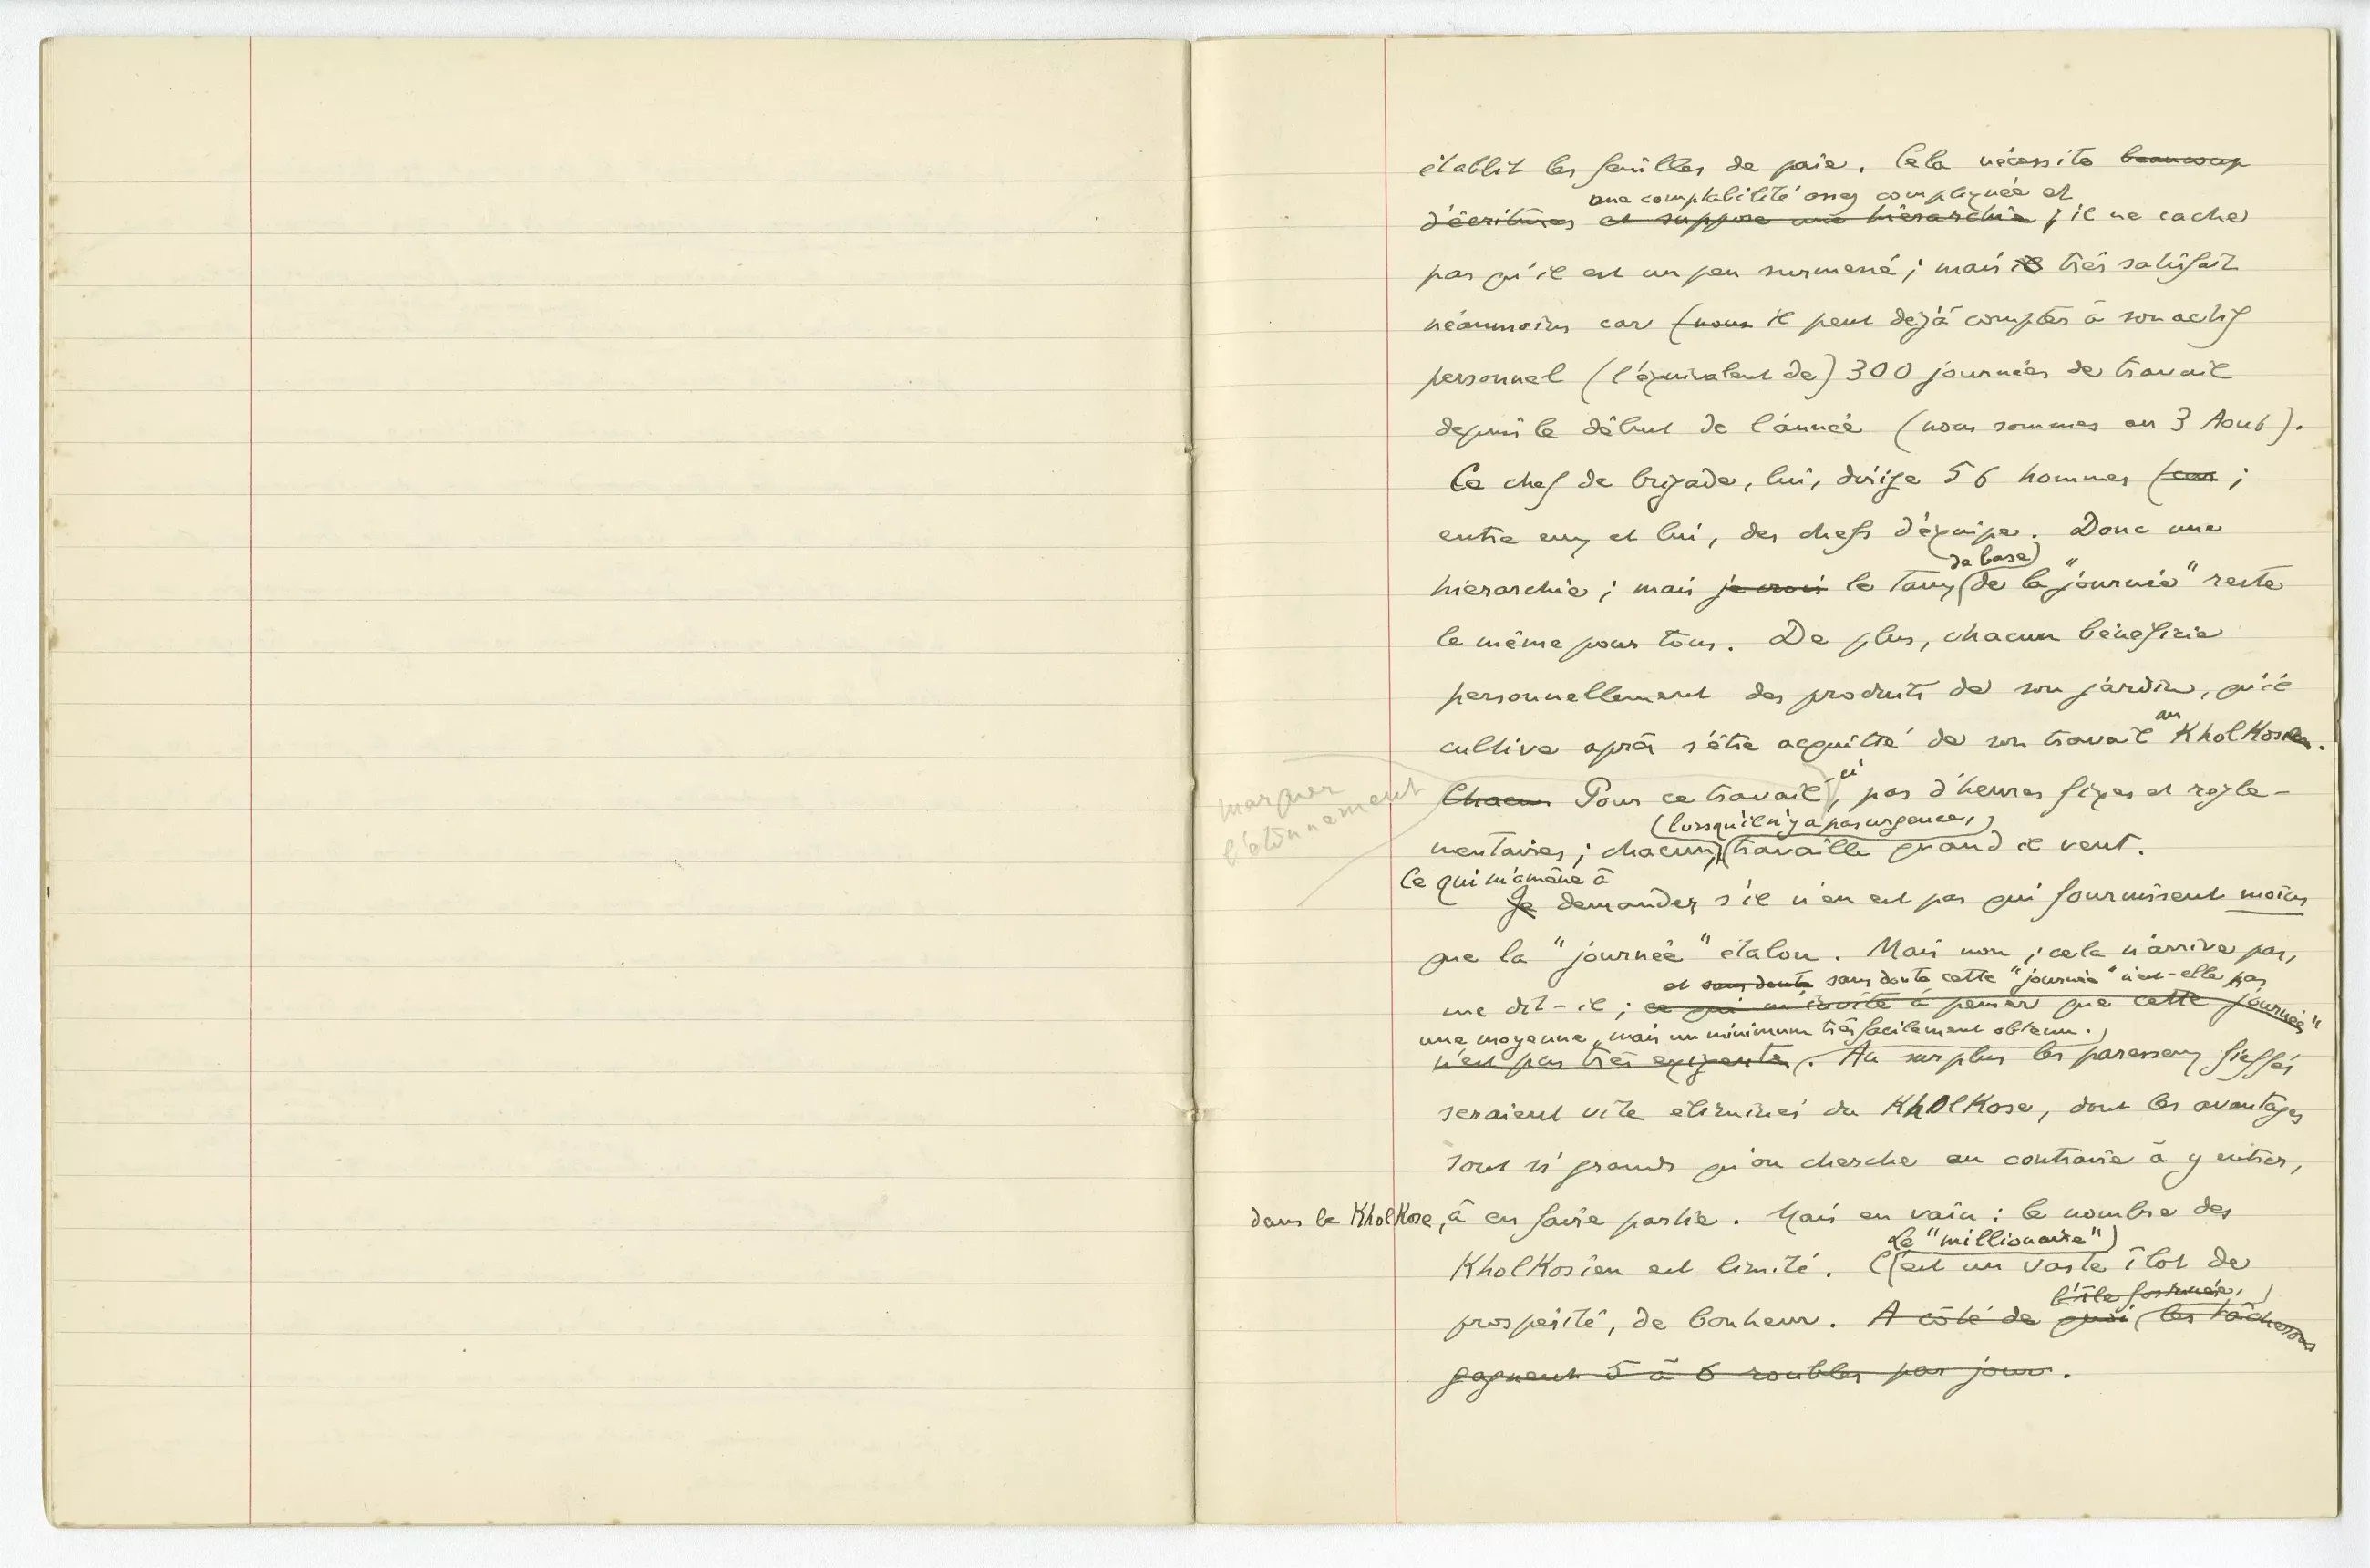 établit les feuilles de paie. Cela nécessite beaucoup
une comptabilité assez compliquée et
d'écritures et suppose une hiérarchie ; il ne cache
pas qu'il est un peu surmené ; mais il très satisfait
néanmoins car (nous il peut déjà compter à son actif
personnel (l'équivalent de) 300 journées de travail
depuis le début de l'année (nous sommes au 3 Aout).
Ce chef de brigade, lui, dirige 56 hommes (car ;
entre eux et lui, des chefs d'équipe. Donc une
de base)
hiérarchie ; mais je crois le taux (de la "journée" reste
le même pour tous. De plus, chacun bénéficie
personnellement des produits de son jardin, qu'il
au
cultive après s'être acquitté de son travail KholKosien.
ci
Chacun Pour ce travail, pas d'heures fixes et régle-
marquer
l'étonnement
(lorsqu'il n'y a pas urgence,)
mentaires ; chacun, travaille quand il veut.
Ce qui m'amène à
Je demander s'il n'en est pas qui fournissent moins
que la "journée" étalon. Mais non ; cela n'arrive pas,
et sans doute sans doute cette "journée" n'est-elle pas
me dit-il ; ce qui m'invite à penser que cette journée"
une moyenne, mais un minimum très facilement obtenu.
n'est pas très exigente. Au surplus les paresseux fieffés
seraient vite éliminés du KhOlKose, dont les avantages
sont si grands qu'on cherche au contraire à y entrer,
dans le KholKose, à en faire partie. Mais en vain : le nombre des
Le "millionaire")
KholKosien est limité. C'est un vaste îlot de
l'île fortunée,)
prospérité, de bonheur. A côté de quoi (les tâcherons
gagnent 5 à 6 roubles par jour.